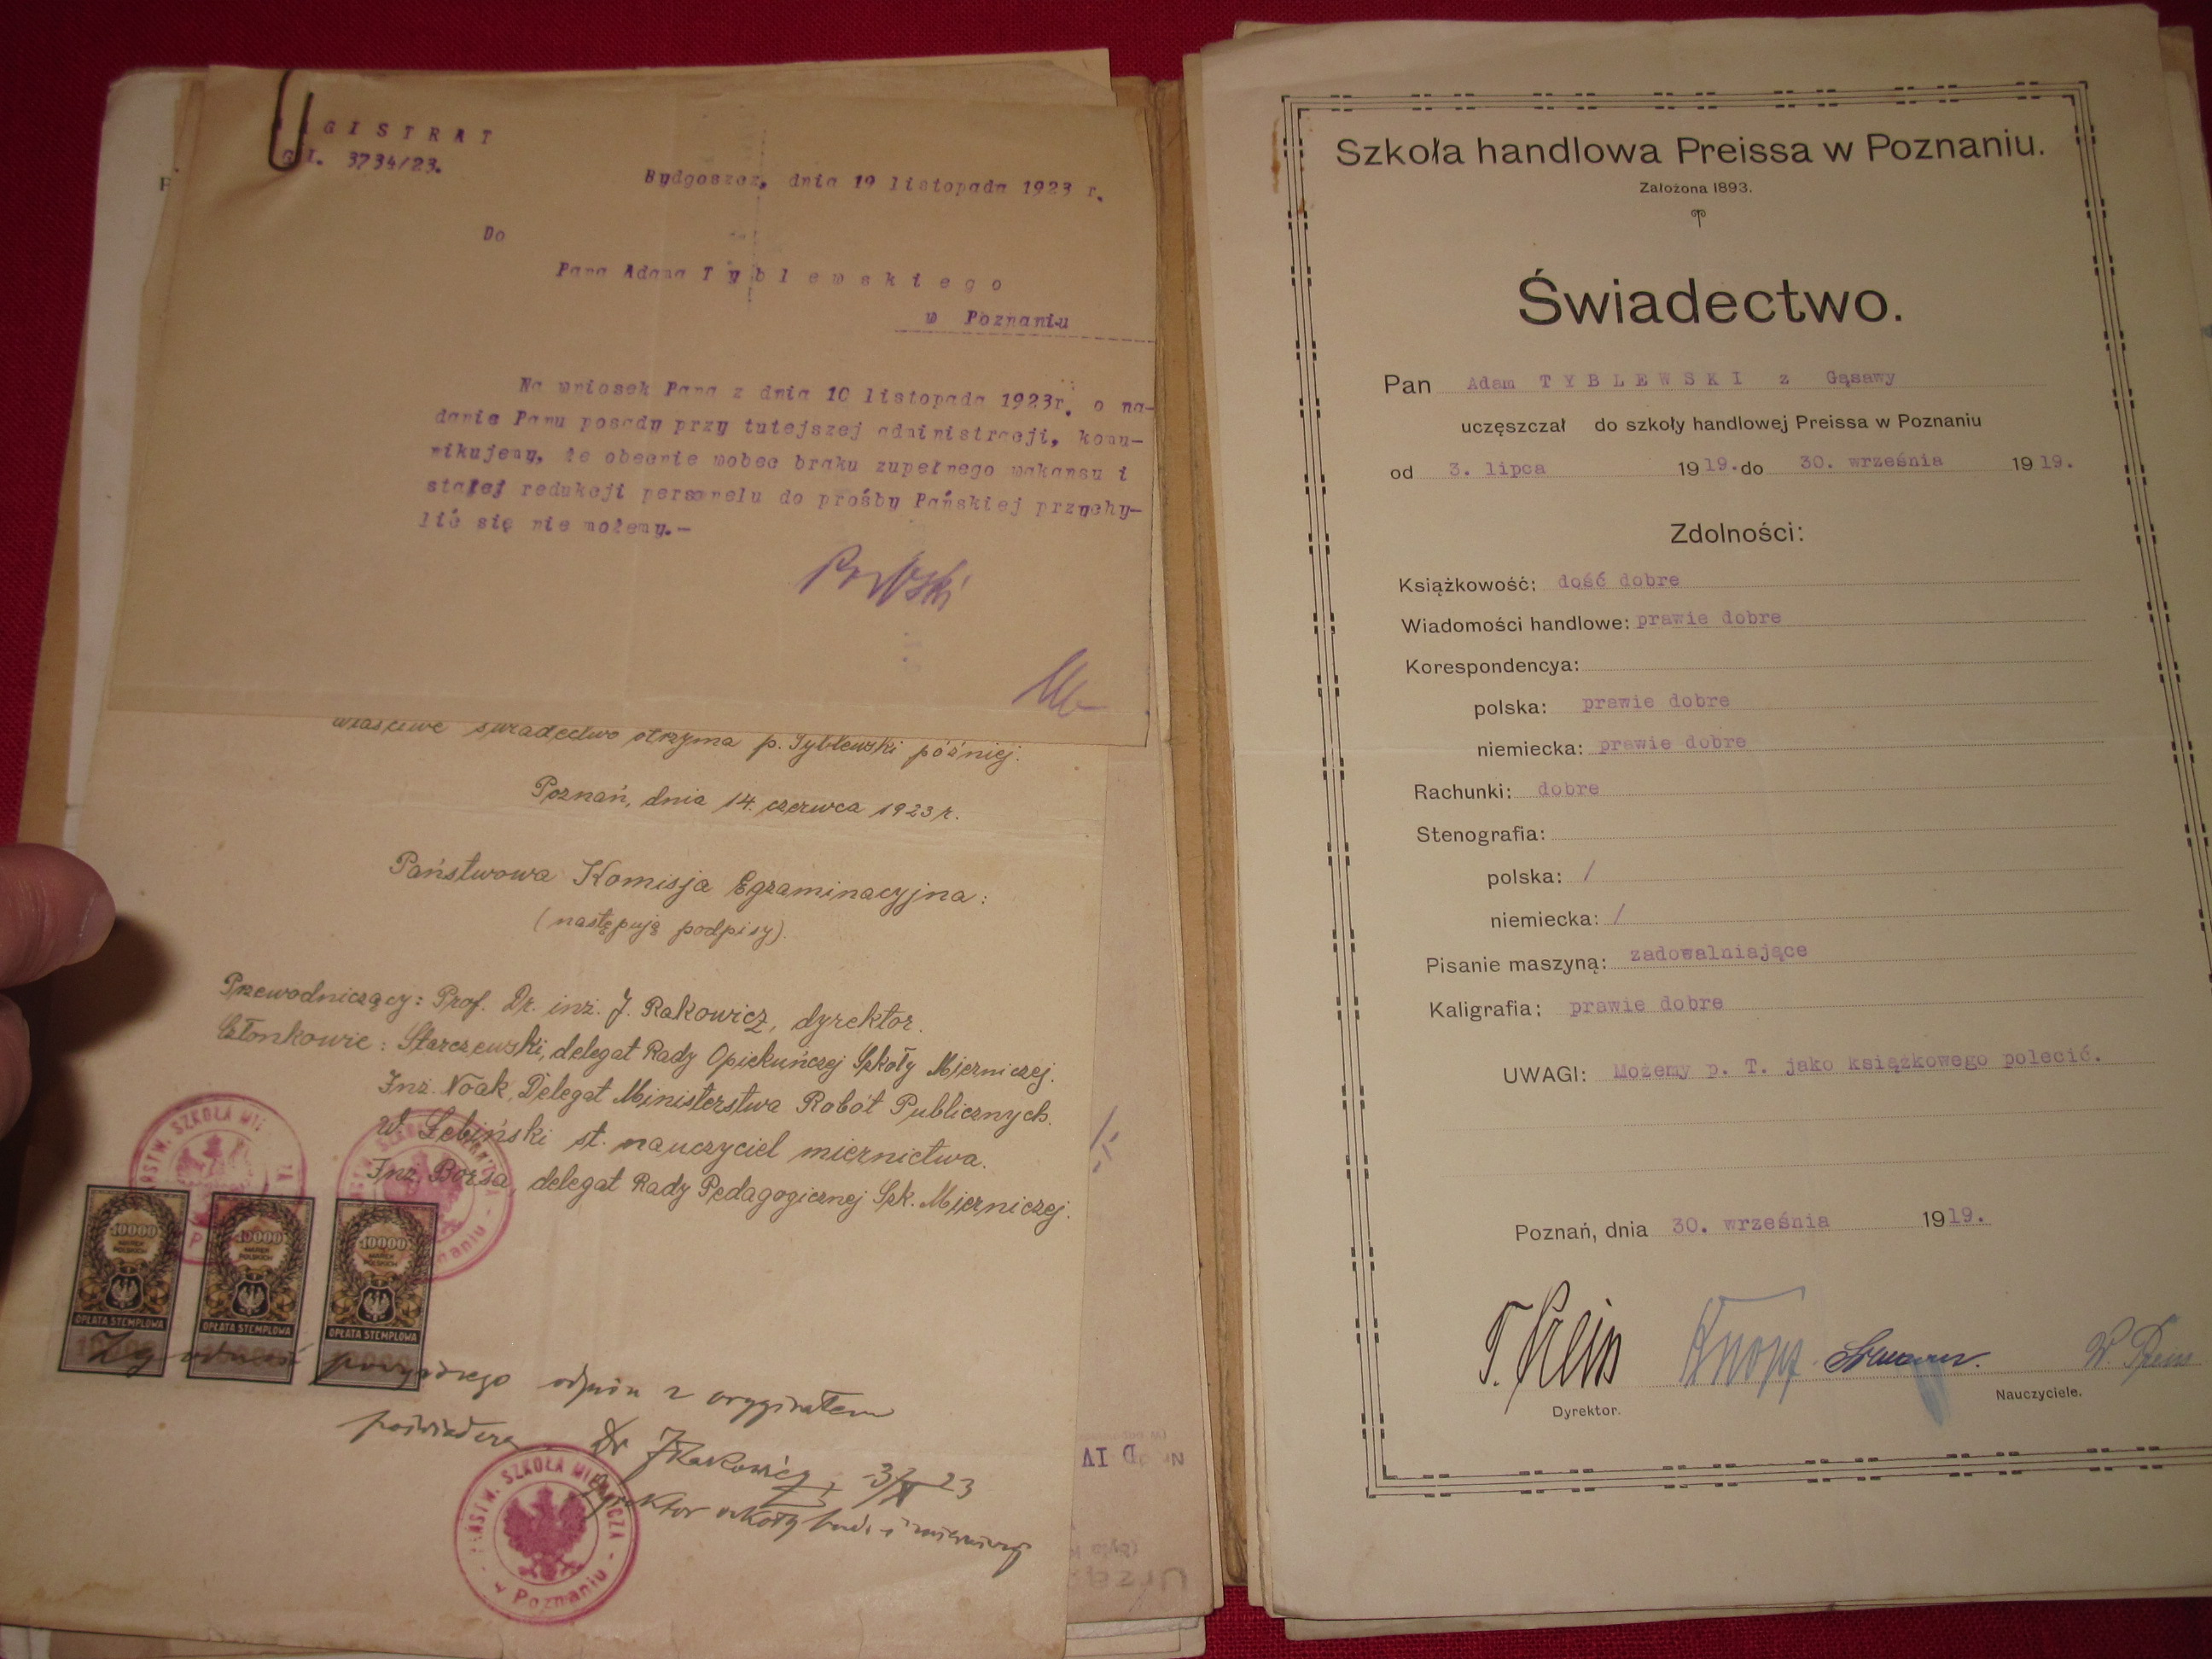 GISTRAT
I. 3734/23.
Bydgoszcz, dnia 19 listopada 1923 r.
Do
Pana Adama Tyblewskiego
w Poznaniu
Na wniosek Pana z dnia 10 listopada 1923r. o na-
danie Panu posady przy tutejszej administracji, komu-
nikujemy, że obecnie wobec braku zupełnego wakansu i
stałej redukcji personelu do prośby Pańskiej przychy-
lić się nie możemy.-
właściwe świadectwo otrzyma p. Tyblewski później.
Poznań, dnia 14. czerwca 1923 r.
Państwowa Komisja Egzaminacyjna:
(następują podpisy).
Przewodniczący: Prof. Dr. inż. J. Rakowicz, dyrektor.
Członkowie: Starczewski, delegat Rady Opiekuńczej Szkoły Mierniczej.
Inż. Noak, Delegat Ministerstwa Robót Publicznych.
W. Łebiński st. nauczyciel miernictwa.
Inż. Borsa, delegat Rady Pedagogicznej Szk. Mierniczej.
PAŃSTW. SZKOŁA MIERNICZA
w Poznaniu
10000 MAREK POLSKICH
OPŁATA STEMPLOWA
10000 MAREK POLSKICH
OPŁATA STEMPLOWA
10000 MAREK POLSKICH
OPŁATA STEMPLOWA
Zgodność powyższego odpisu z oryginałem
poświadcza Dr JRakowicz 23
Dyrektor szkoły bud. i mierniczej
PAŃSTW. SZKOŁA MIERNICZA
w Poznaniu
Nr D IV
Szkoła handlowa Preissa w Poznaniu.
Założona 1893.
Świadectwo.
Pan Adam TYBLEWSKI z Gąsawy
uczęszczał do szkoły handlowej Preissa w Poznaniu
od 3. lipca 1919. do 30. września 1919.
Zdolności:
Książkowość: dość dobre
Wiadomości handlowe: prawie dobre
Korespondencya:
polska: prawie dobre
niemiecka: prawie dobre
Rachunki: dobre
Stenografia:
polska: /
niemiecka: /
Pisanie maszyną: zadowalniające
Kaligrafia: prawie dobre
UWAGI: Możemy p. T. jako książkowego polecić.
Poznań, dnia 30. września 1919.
T. Klein Knopf
Dyrektor.
Nauczyciele.